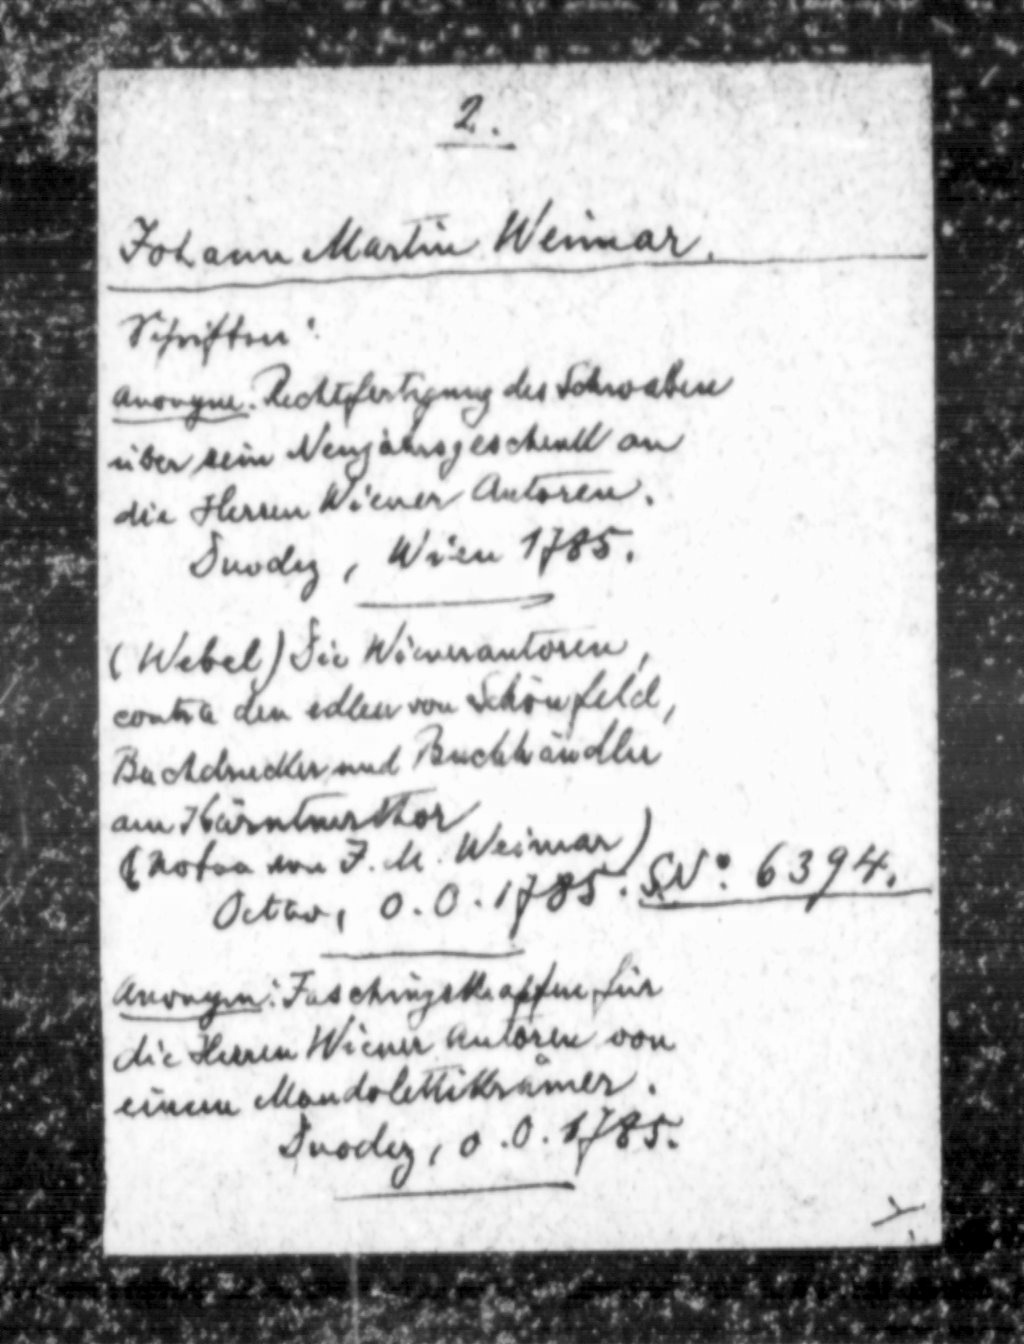 2.
Johann Martin Weimar.
Schriften:
Anonym. Rechtfertigung des Schwaben
über sein Neujahrsgeschenk an
die Herren Wiener Autoren.
Duodez, Wien 1785.
(Webel) Die Wienerautoren,
contra den edlen von Schönfeld,
Buchdrucker und Buchhändler
am Kärntnerthor
(Notaa von J. M. Weimar)
Octav, o. O. 1785. S. No. 6394.
Anonym: Faschingskrapfen für
die Herren Wiener Autoren von
einem Mandolettikrämer.
Duodez, o. O. 1785.